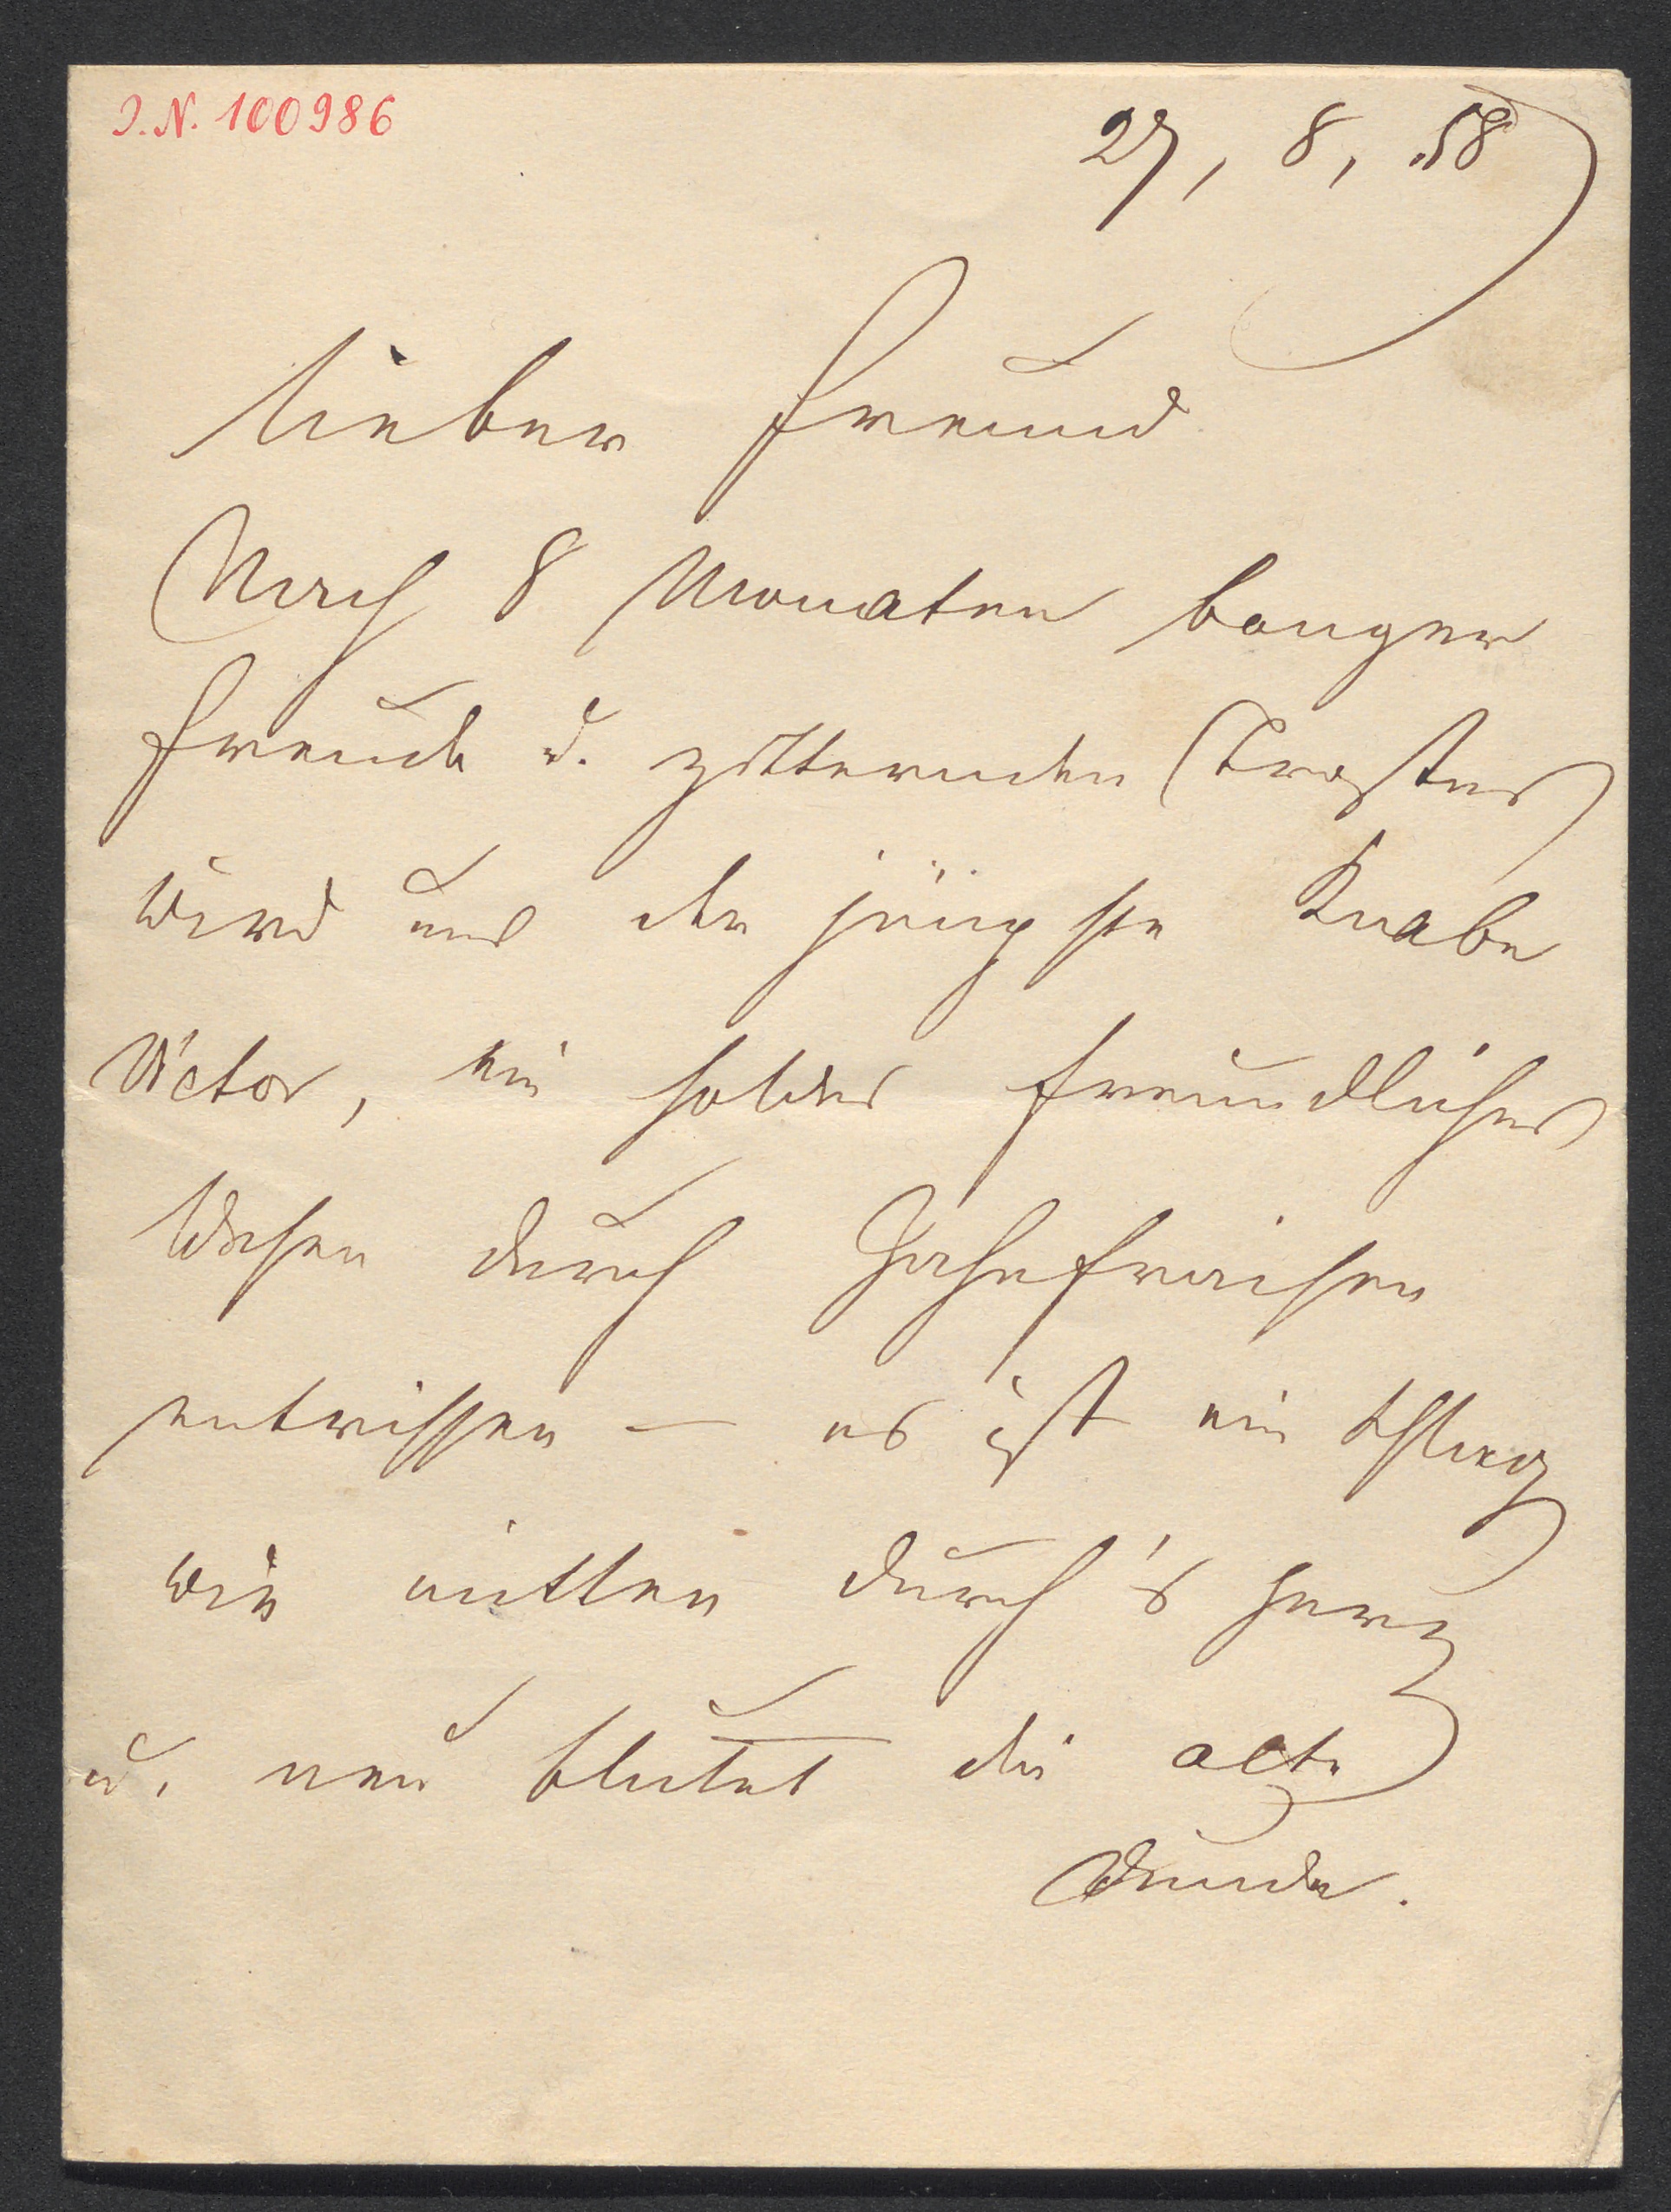 I.N. 100986
27, 8, 58
Lieber Freund
Nach 8 Monaten banger
Freude u. zitternden Trostes
wird uns der jüngste Knabe
Victor, ein holdes freundliches
Wesen durch
entrissen – es ist ein Schlag
wie mitten durch's Herz
u. neu blutet die alte
Wunde.